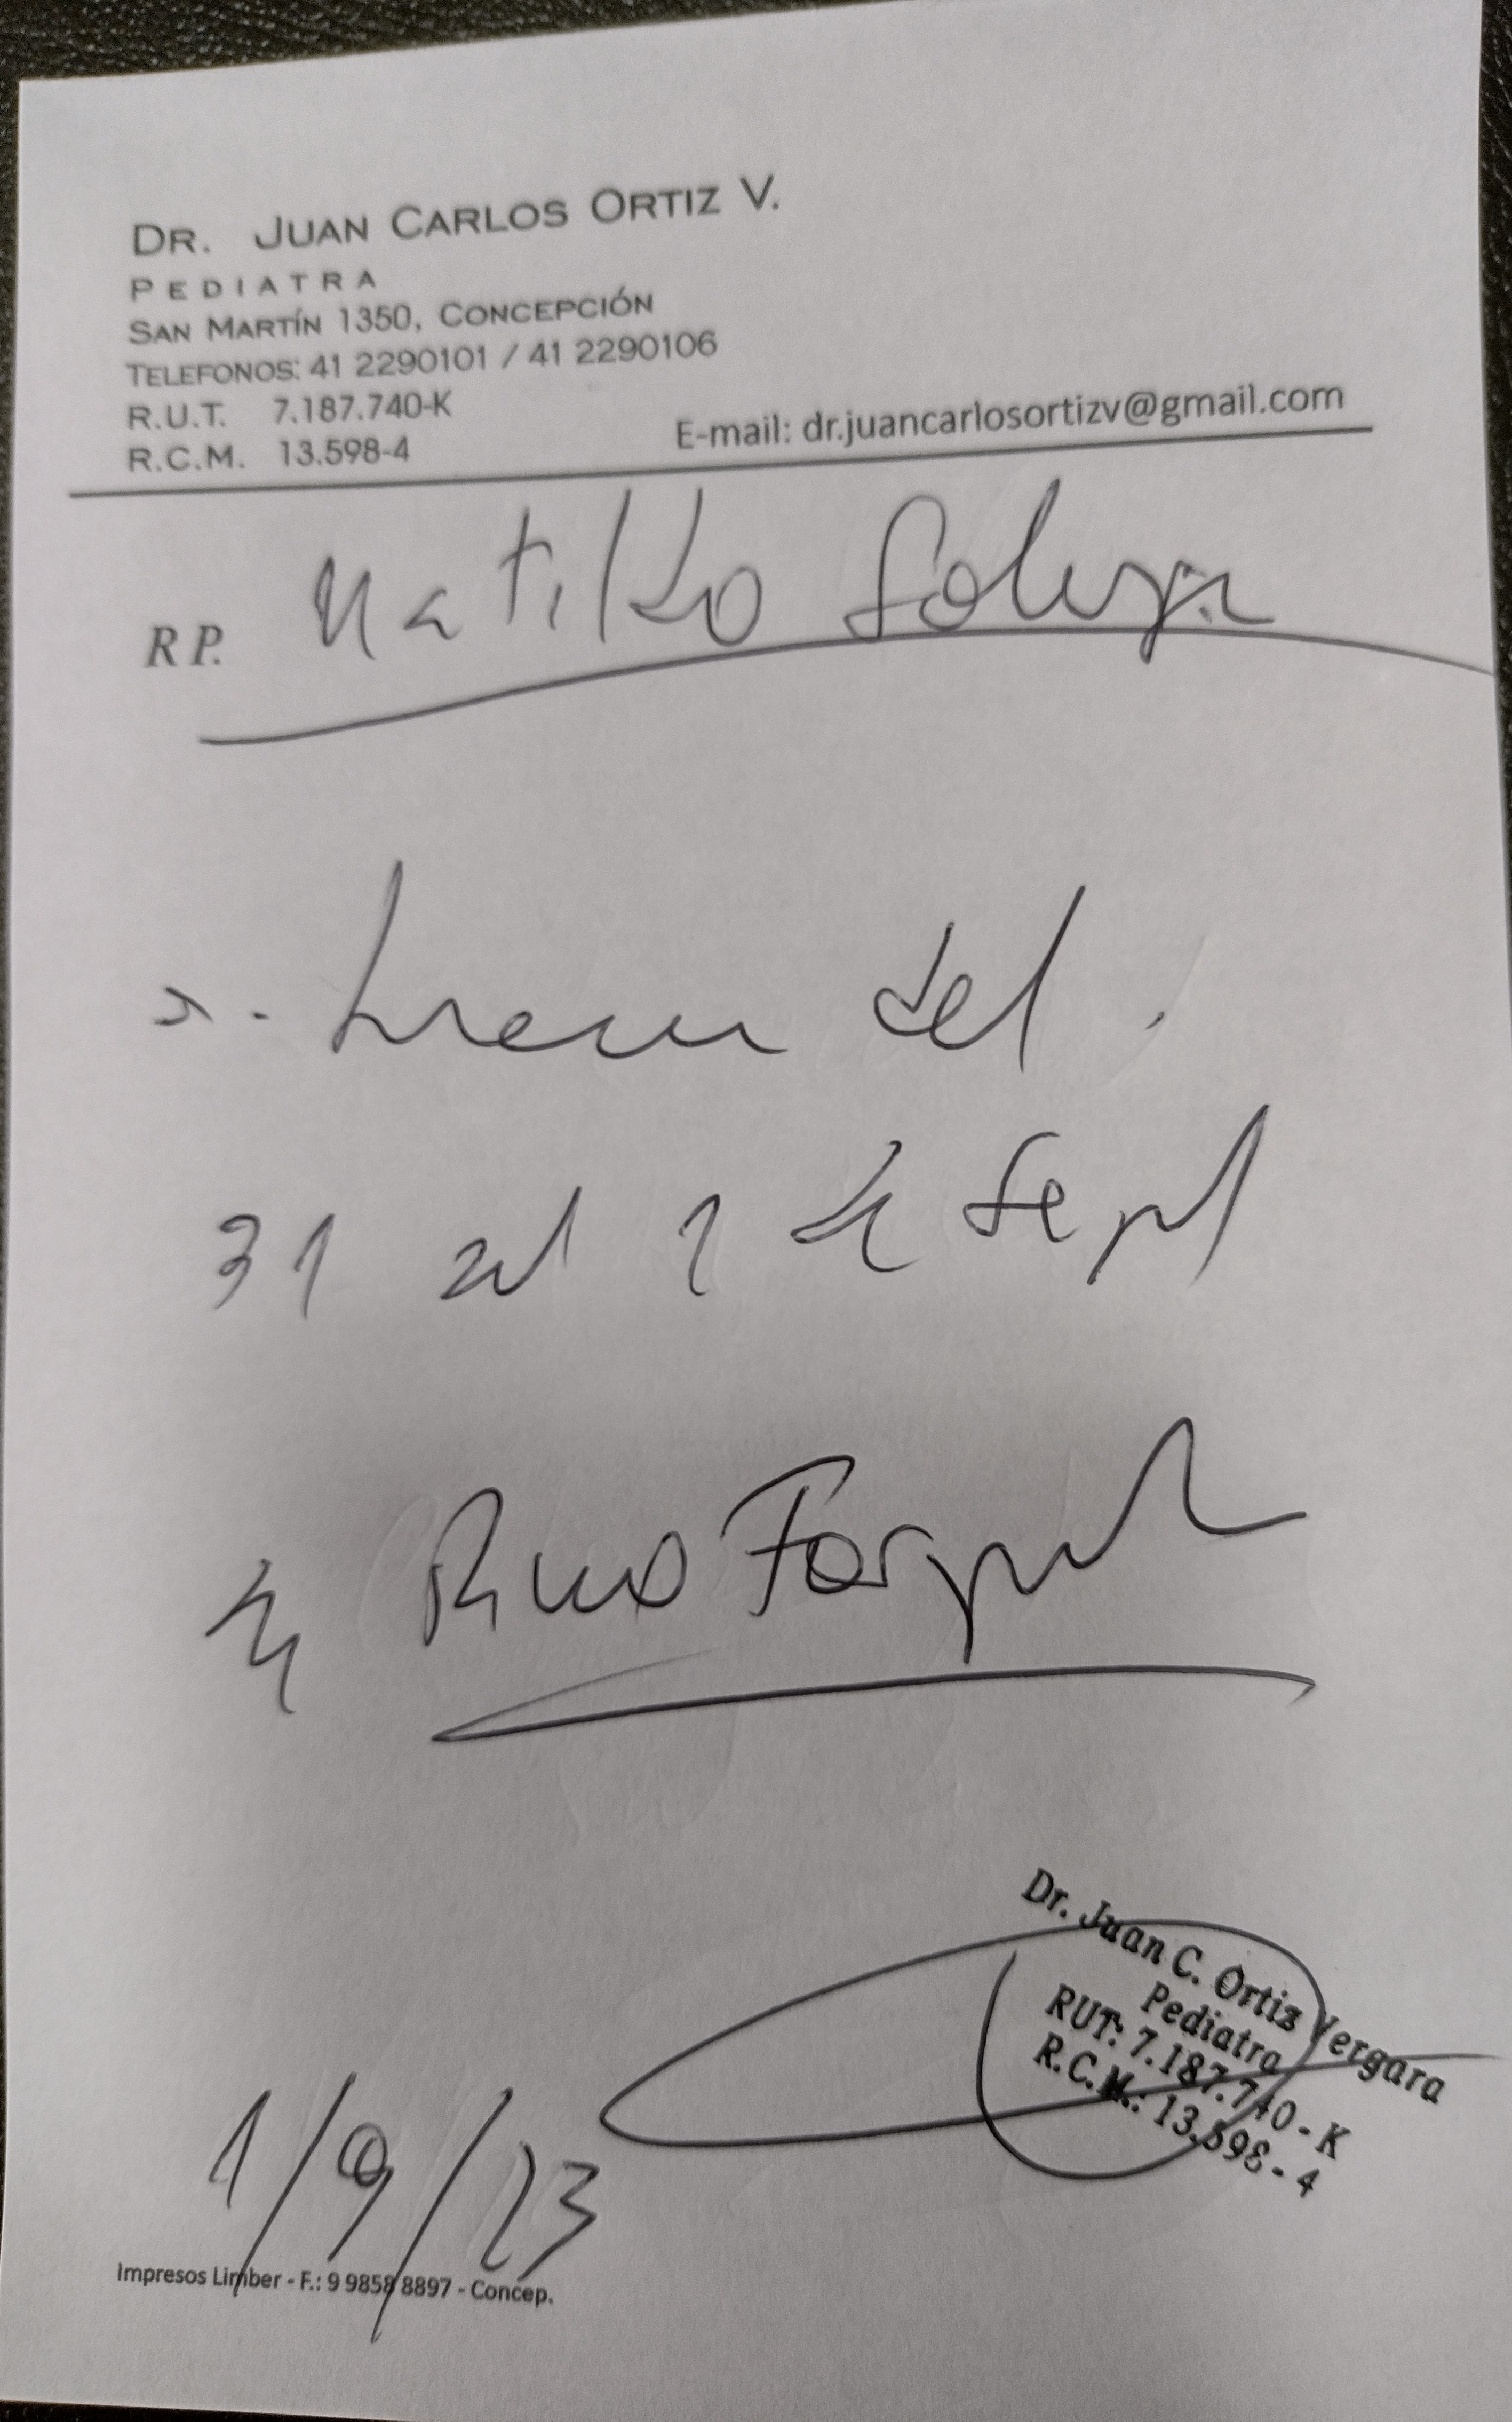 DR. JUAN CARLOS ORTIZ V.
PEDIATRA
SAN MARTÍN 1350, CONCEPCIÓN
TELEFONOS: 41 2290101 / 41 2290106
R.U.T. 7.187.740-K
R.C.M. 13.598-4
E-mail: dr.juancarlosortizv@gmail.com
RP.
del
31 al 1 de Sept
1/9/23
Dr. Juan C. Ortiz Vergara
Pediatra
RUT: 7.187.740-K
R.C.M.: 13.598-4
Impresos Limber - F.: 9 9858 8897 - Concep.